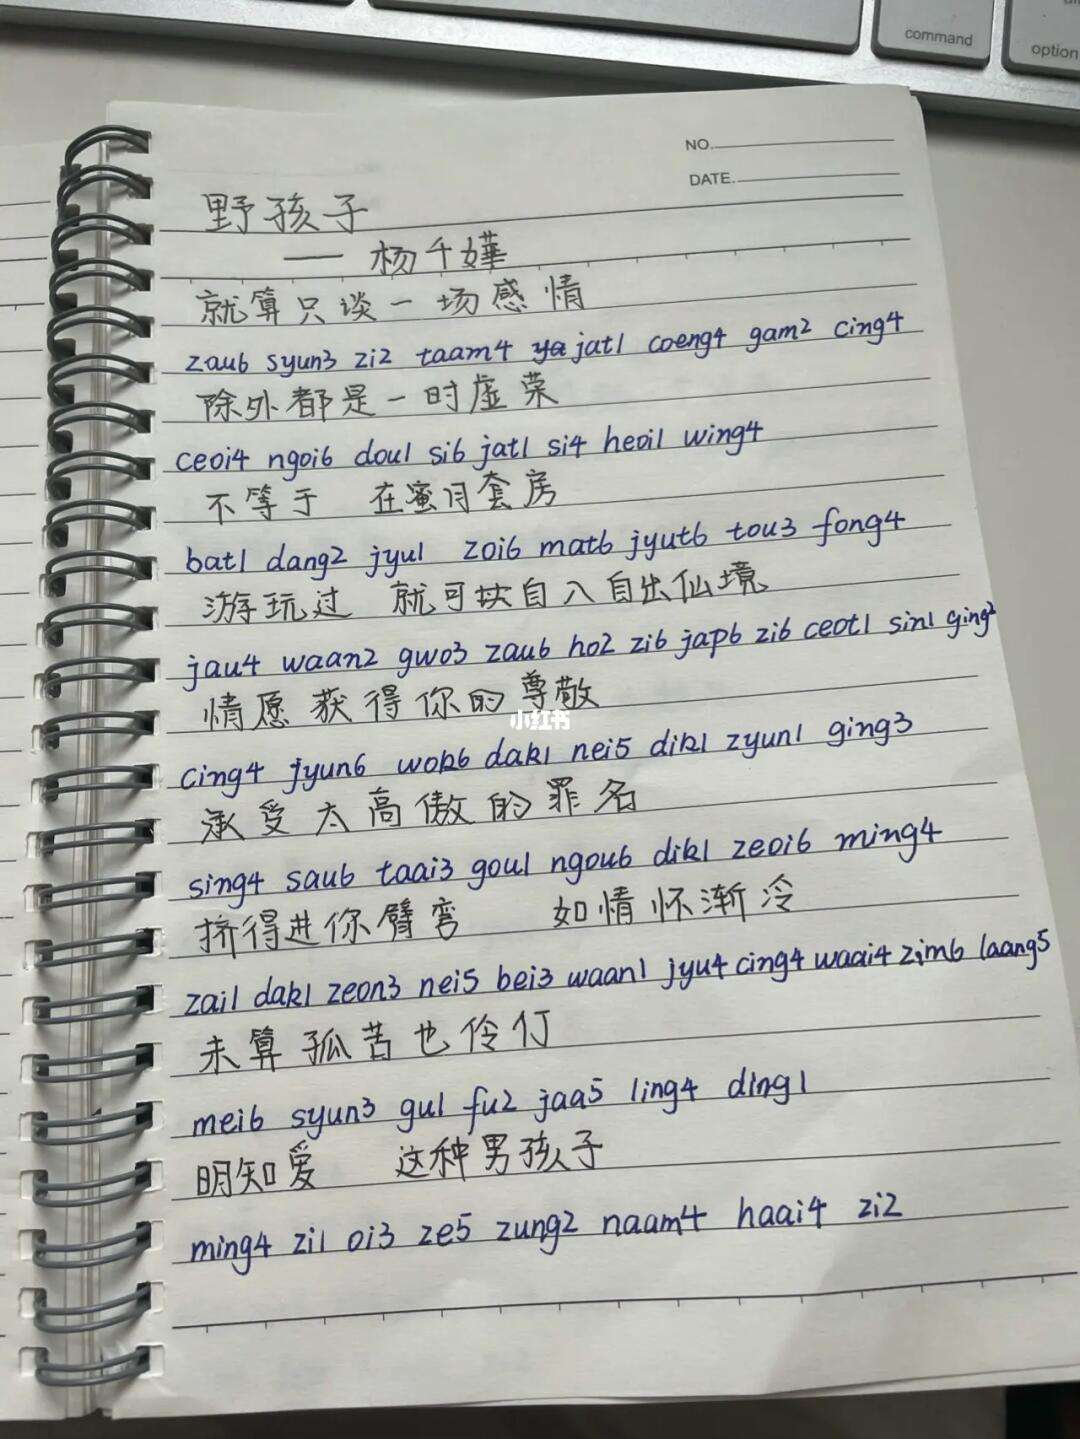 command
option
NO.
DATE.
野孩子
—— 杨千嬅
就算只谈一场感情
zau6 syun3 zi2 taam4 jat1 coeng4 gam2 cing4
除外都是一时虚荣
ceoi4 ngoi6 dou1 si6 jat1 si4 heoi1 wing4
不等于 在蜜月套房
bat1 dang2 jyu1 zoi6 mat6 jyut6 tou3 fong4
游玩过 就可块自入自出仙境
jau4 waan2 gwo3 zau6 ho2 zi6 jap6 zi6 ceot1 sin1 ging2
情愿获得你的尊敬
小红书
cing4 jyun6 wok6 dak1 nei5 dik1 zyun1 ging3
承受太高傲的罪名
sing4 sau6 taai3 gou1 ngou6 dik1 zeoi6 ming4
挤得进你臂弯 如情怀渐冷
zai1 dak1 zeon3 nei5 bei3 waan1 jyu4 cing4 waai4 zim6 laang5
未算孤苦也伶仃
mei6 syun3 gu1 fu2 jaa5 ling4 ding1
明知爱 这种男孩子
ming4 zi1 oi3 ze5 zung2 naam4 haai4 zi2